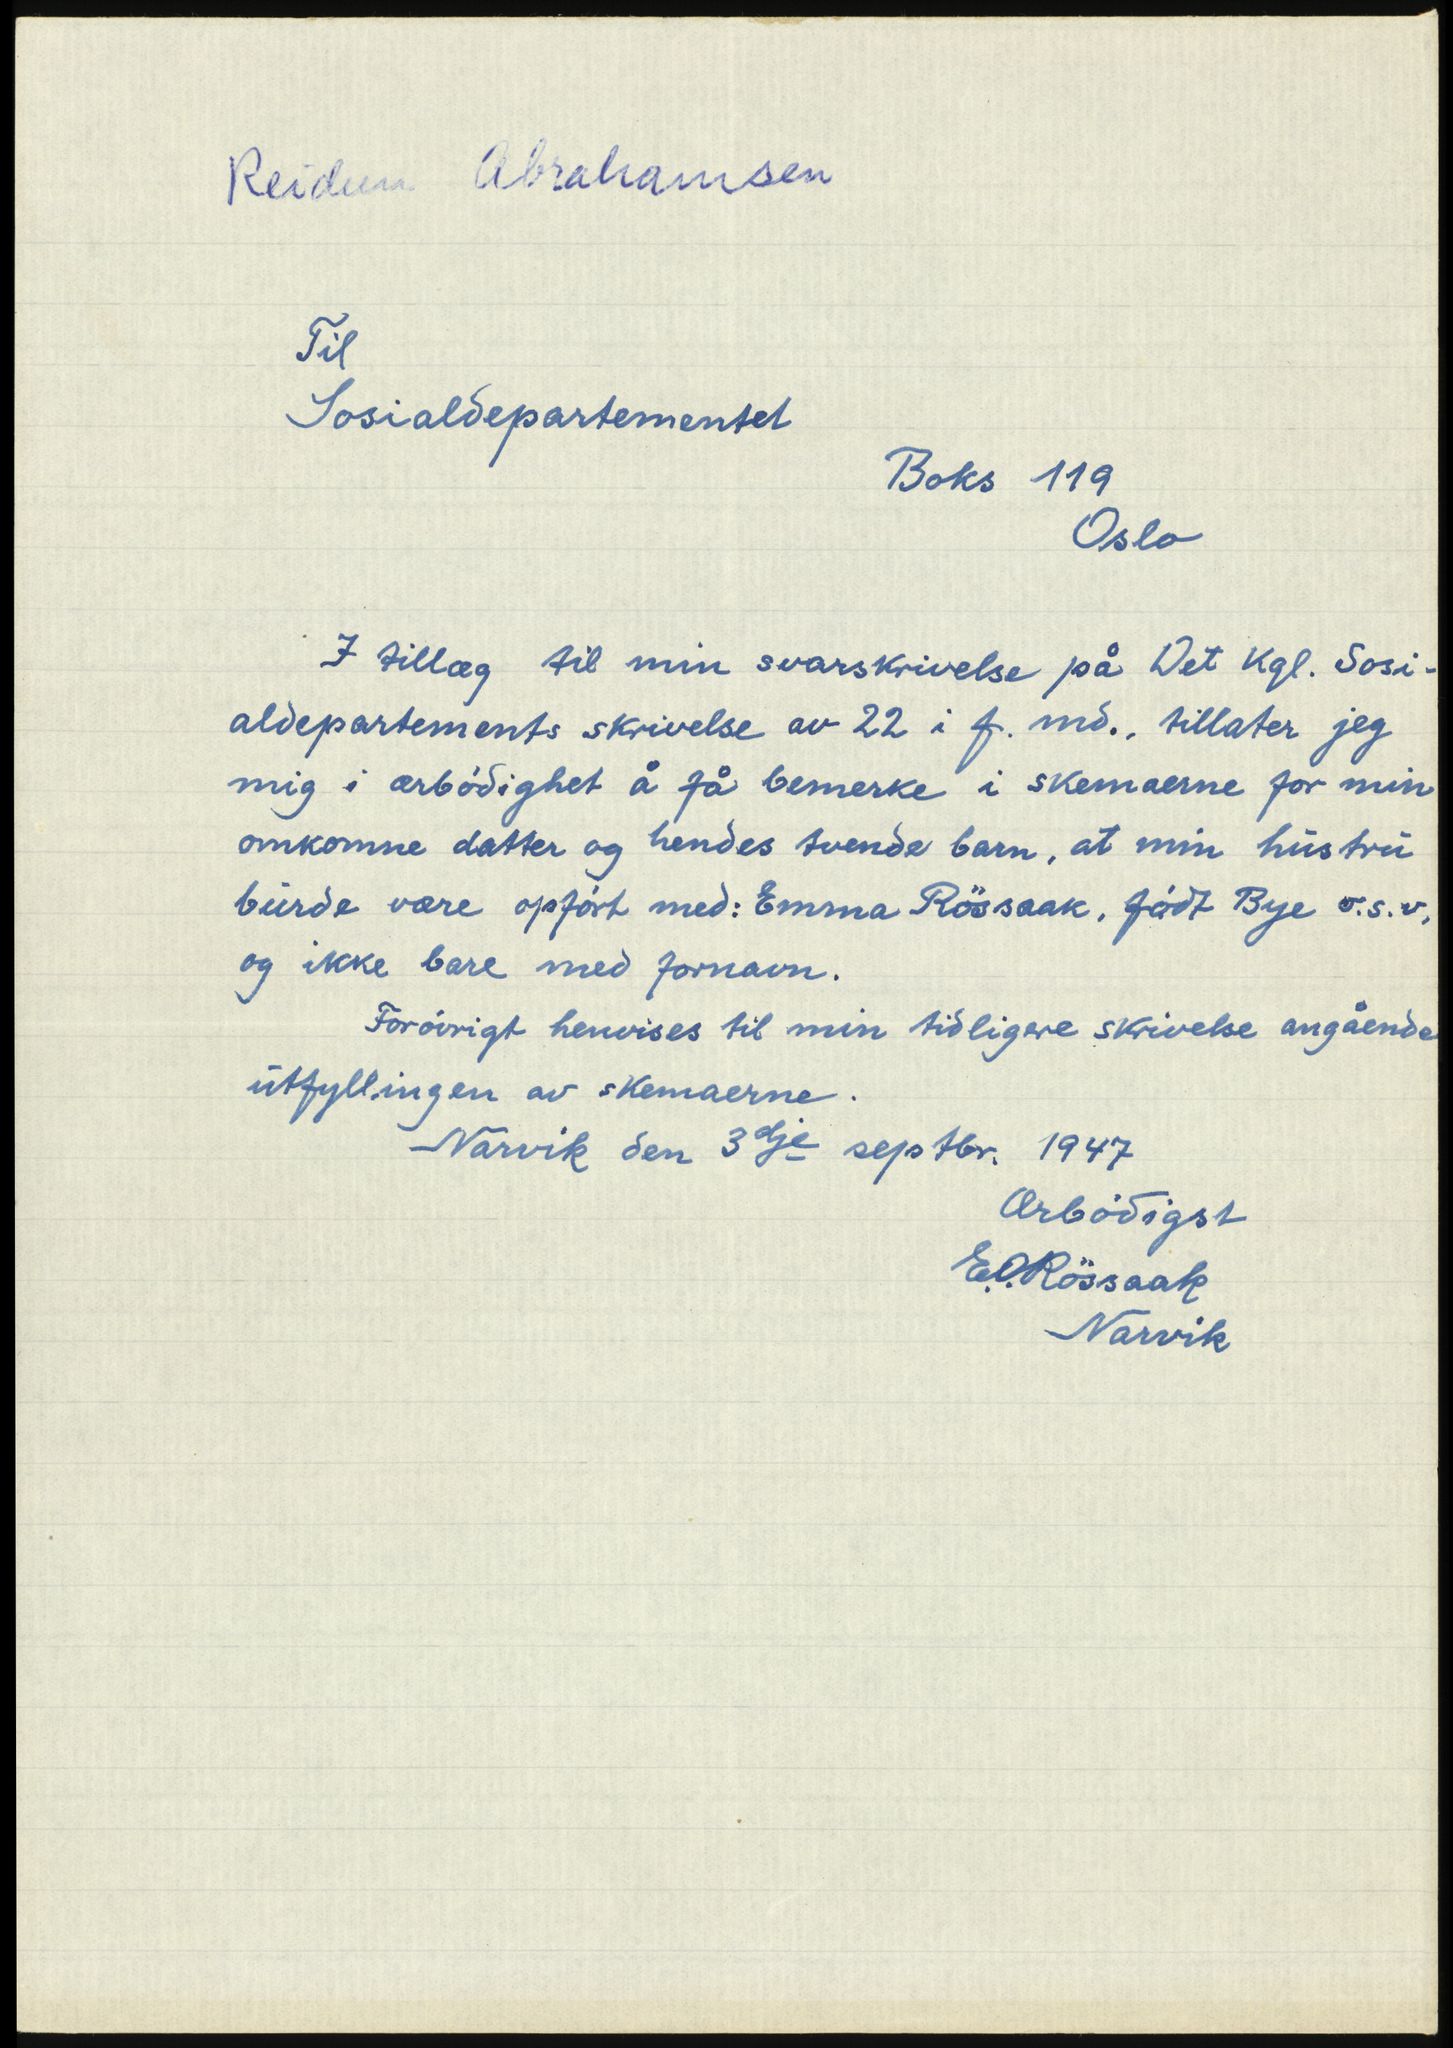 Reidun Abrahamsen
Til
Sosialdepartementet
Boks 119
Oslo
I tillæg til min svarskrivelse på Det Kgl. Sosi-
aldepartements skrivelse av 22 i f. md., tillater jeg
mig i ærbódighet å få bemerke i skemaerne for min
omkomne datter og hendes tvende barn, at min hústrú
búrde være opfórt med: Emma Rössaak, fódt Bye o.s.v,
og ikke bare med fornavn.
Foróvrigt henvises til min tidligere skrivelse angående
útfyllingen av skemaerne.
Narvik den 3dje septbr. 1947
Ærbódigst
E.O. Rössaak
Narvik